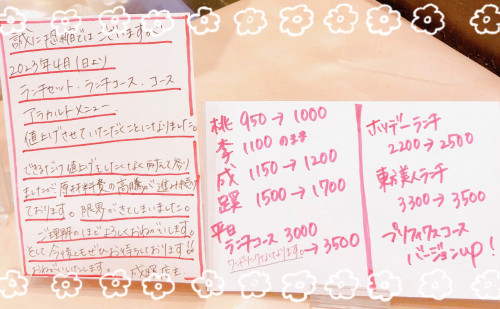 誠に恐縮ではございますが
2023年4月1日より
ランチセット、ランチコース、コース
アラカルトメニュー
値上げさせていただくことになりました。
できるだけ値上げをしたくなく
ましたが原材料費の高騰が進み続け
ております。限界がきてしまいました。
ご理解のほどよろしくおねがいします。
そして今後ともぜひお待ちしております!!
おねがいいたします。 成蹊店主
桃 950→1000
李 1100のまま
成 1150→1200
蹊 1500→1700
平日
ランチコース 3000
→3500
ホリデーランチ
2200→2500
東方美人ランチ
3300→3500
プリフィックスコース
バージョンup!